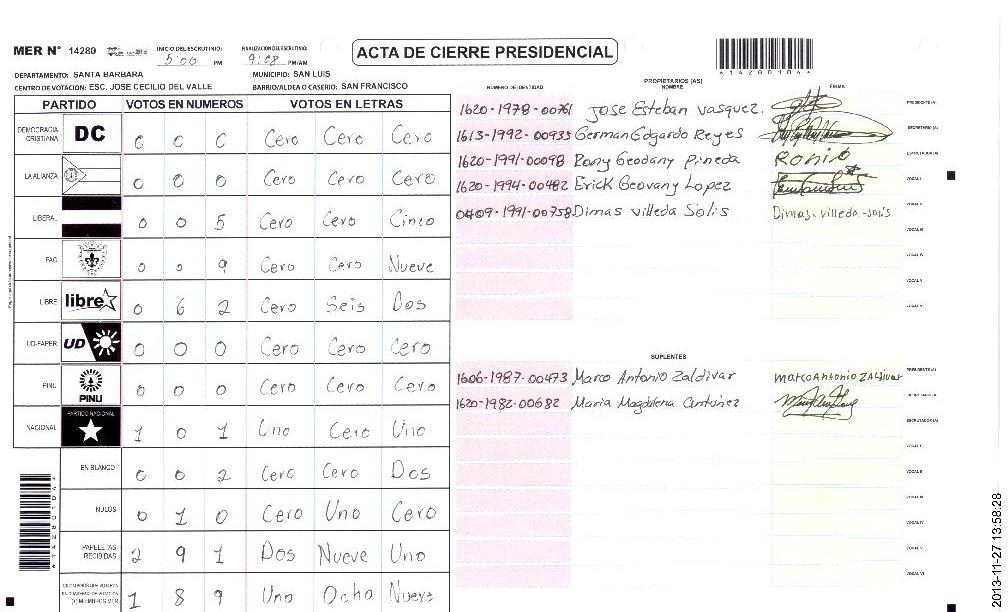 MER N° 14280
INICIO DEL ESCRUTINIO:
5:00 PM
FINALIZACION DEL ESCRUTINIO:
9:08 PM/AM
ACTA DE CIERRE PRESIDENCIAL
DEPARTAMENTO: SANTA BARBARA
MUNICIPIO: SAN LUIS
CENTRO DE VOTACION: ESC. JOSE CECILIO DEL VALLE
BARRIO/ALDEA O CASERIO: SAN FRANCISCO
*14280104*
PARTIDO VOTOS EN NUMEROS VOTOS EN LETRAS
DEMOCRACIA CRISTIANA DC 0 0 0 Cero Cero Cero
LA ALIANZA 0 0 0 Cero Cero Cero
LIBERAL 0 0 5 Cero Cero Cinco
PAC 0 0 9 Cero Cero Nueve
LIBRE libre 0 6 2 Cero Seis Dos
UD-FAPER UD 0 0 0 Cero Cero Cero
PINU PINU 0 0 0 Cero Cero Cero
NACIONAL PARTIDO NACIONAL 1 0 1 Uno Cero Uno
EN BLANCO 0 0 2 Cero Cero Dos
NULOS 0 1 0 Cero Uno Cero
PAPELETAS RECIBIDAS 2 9 1 Dos Nueve Uno
CIUDADANOS QUE VOTARON EN CUADERNO DE VOTACION (+) MIEMBROS MER 1 8 9 Uno Ocho Nueve
*14280104*
PROPIETARIOS (AS)
NUMERO DE IDENTIDAD NOMBRE FIRMA
1620-1978-00761 Jose Esteban Vasquez. PRESIDENTE(A)
1613-1992-00935 German Edgardo Reyes SECRETARIO (A)
1620-1991-00098 Rony Geodany Pineda ESCRUTADOR(A)
1620-1994-00482 Erick Geovany Lopez VOCAL I
0409-1991-00758 Dimas Villeda Solis Dimas Villeda Solis VOCAL II
VOCAL III
VOCAL IV
VOCAL V
VOCAL VI
SUPLENTES
1606-1987-00473 Marco Antonio Zaldivar Marco Antonio ZALdivar PRESIDENTE(A)
1620-1982-00682 Maria Magdalena Antunez SECRETARIO (A)
ESCRUTADOR (A)
VOCAL I
VOCAL II
VOCAL III
VOCAL IV
VOCAL V
VOCAL VI
2013-11-27 13:58:28